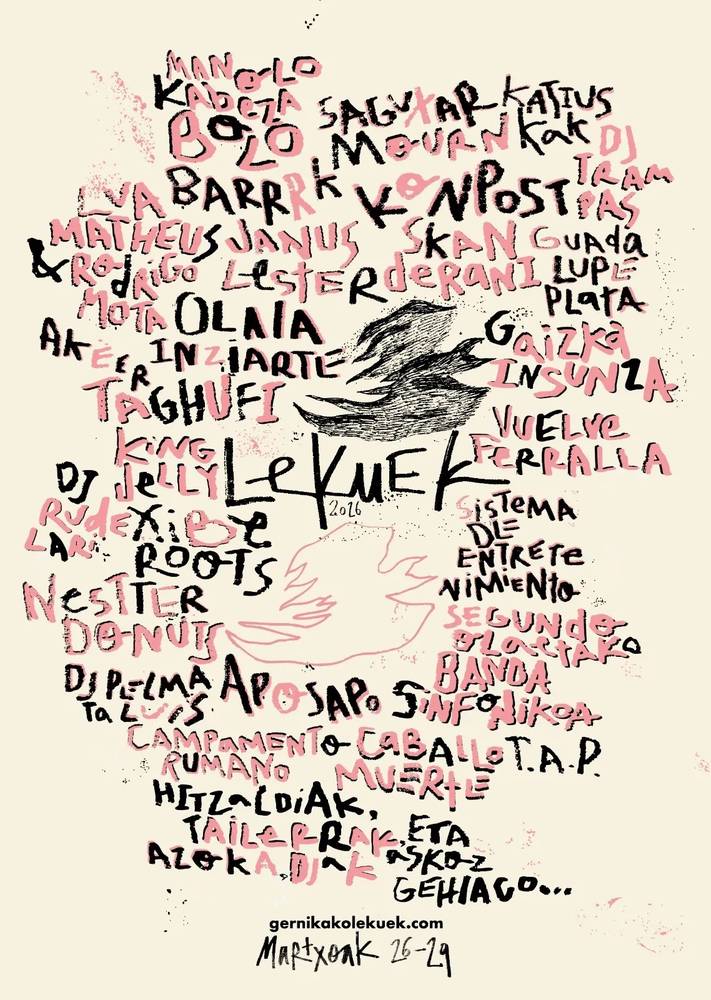 MANOLO
KABEZA
BOLO
SAGUXAR
KATIUS
MOURN
KaK
DJ
TRAM
PAS
LVA
BARRRK
KONPOST
MATHEUS
& RODRIGO
MOTA
JANUS
LESTER
SKAN
deRANI
GUADa
LUPE
PLaTA
OLAIA
INZIARTE
AKEER
TAGHUFI
Gaizka
INSUNZA
VUELVe
FeRRALLA
KING
JeLLY
DJ
RUDe
LARi
LeKuEK
2026
XiBeRooTS
SiSTEMA
DE
ENTRETe
NiMiENTo
NesTTER
DONUTS
SEGUNDo
OLaeTAKo
BANDA
SiNFoNiKoA
DJ PeLMA
Ta LUIS
APoSAPo
CAMPAMENTo
RUMANo
CaBALLo
MUERTE
T.A.P.
HITZaLDiAK,
TAiLeRRAK, ETA
AZoKA, DJaK aSKoZ
GEHIAGO...
gernikakolekuek.com
Martxoak 26-29